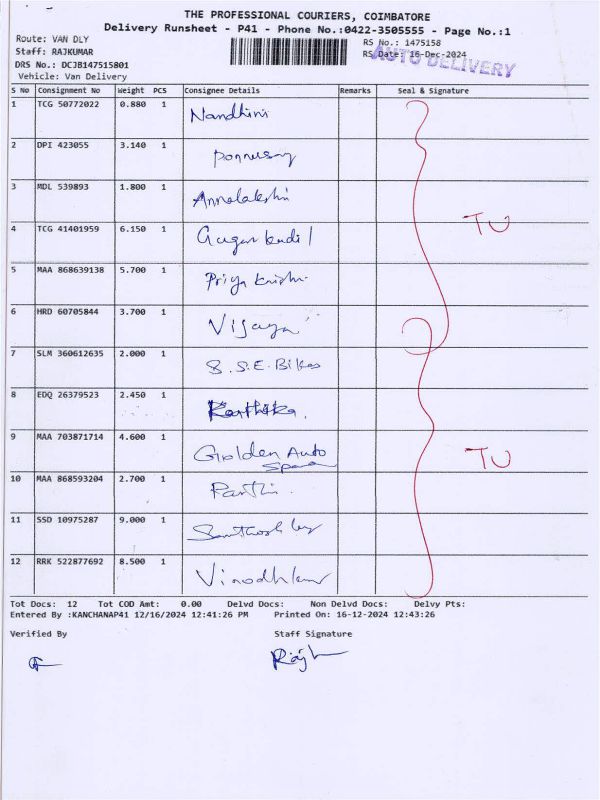 THE PROFESSIONAL COURIERS, COIMBATORE
Delivery Runsheet - P41 - Phone No.:0422-3505555 - Page No.:1
Route: VAN DLY
RS No.: 1475158
Staff: RAJKUMAR
RS Date: 16-Dec-2024
AUTO DELIVERY
DRS No.: DCJB147515801
Vehicle: Van Delivery
S No Consignment No Weight PCS Consignee Details Remarks Seal & Signature
1 TCG 50772022 0.880 1 Nandhini
2 DPI 423055 3.140 1 Ponnusamy
3 MDL 539893 1.800 1 Annalakshmi
4 TCG 41401959 6.150 1
TU
5 MAA 868639138 5.700 1 Priya
6 HRD 60705844 3.700 1 Vijaya
7 SLM 360612635 2.000 1 S.S.E. Bikes
8 EDQ 26379523 2.450 1 Karthika.
9 MAA 703871714 4.600 1 Golden Auto
Spares
TU
10 MAA 868593204 2.700 1
11 SSD 10975287 9.000 1
12 RRK 522877692 8.500 1 Vinodhkumar
Tot Docs: 12 Tot COD Amt: 0.00 Delvd Docs: Non Delvd Docs: Delvy Pts:
Entered By :KANCHANAP41 12/16/2024 12:41:26 PM Printed On: 16-12-2024 12:43:26
Verified By Staff Signature